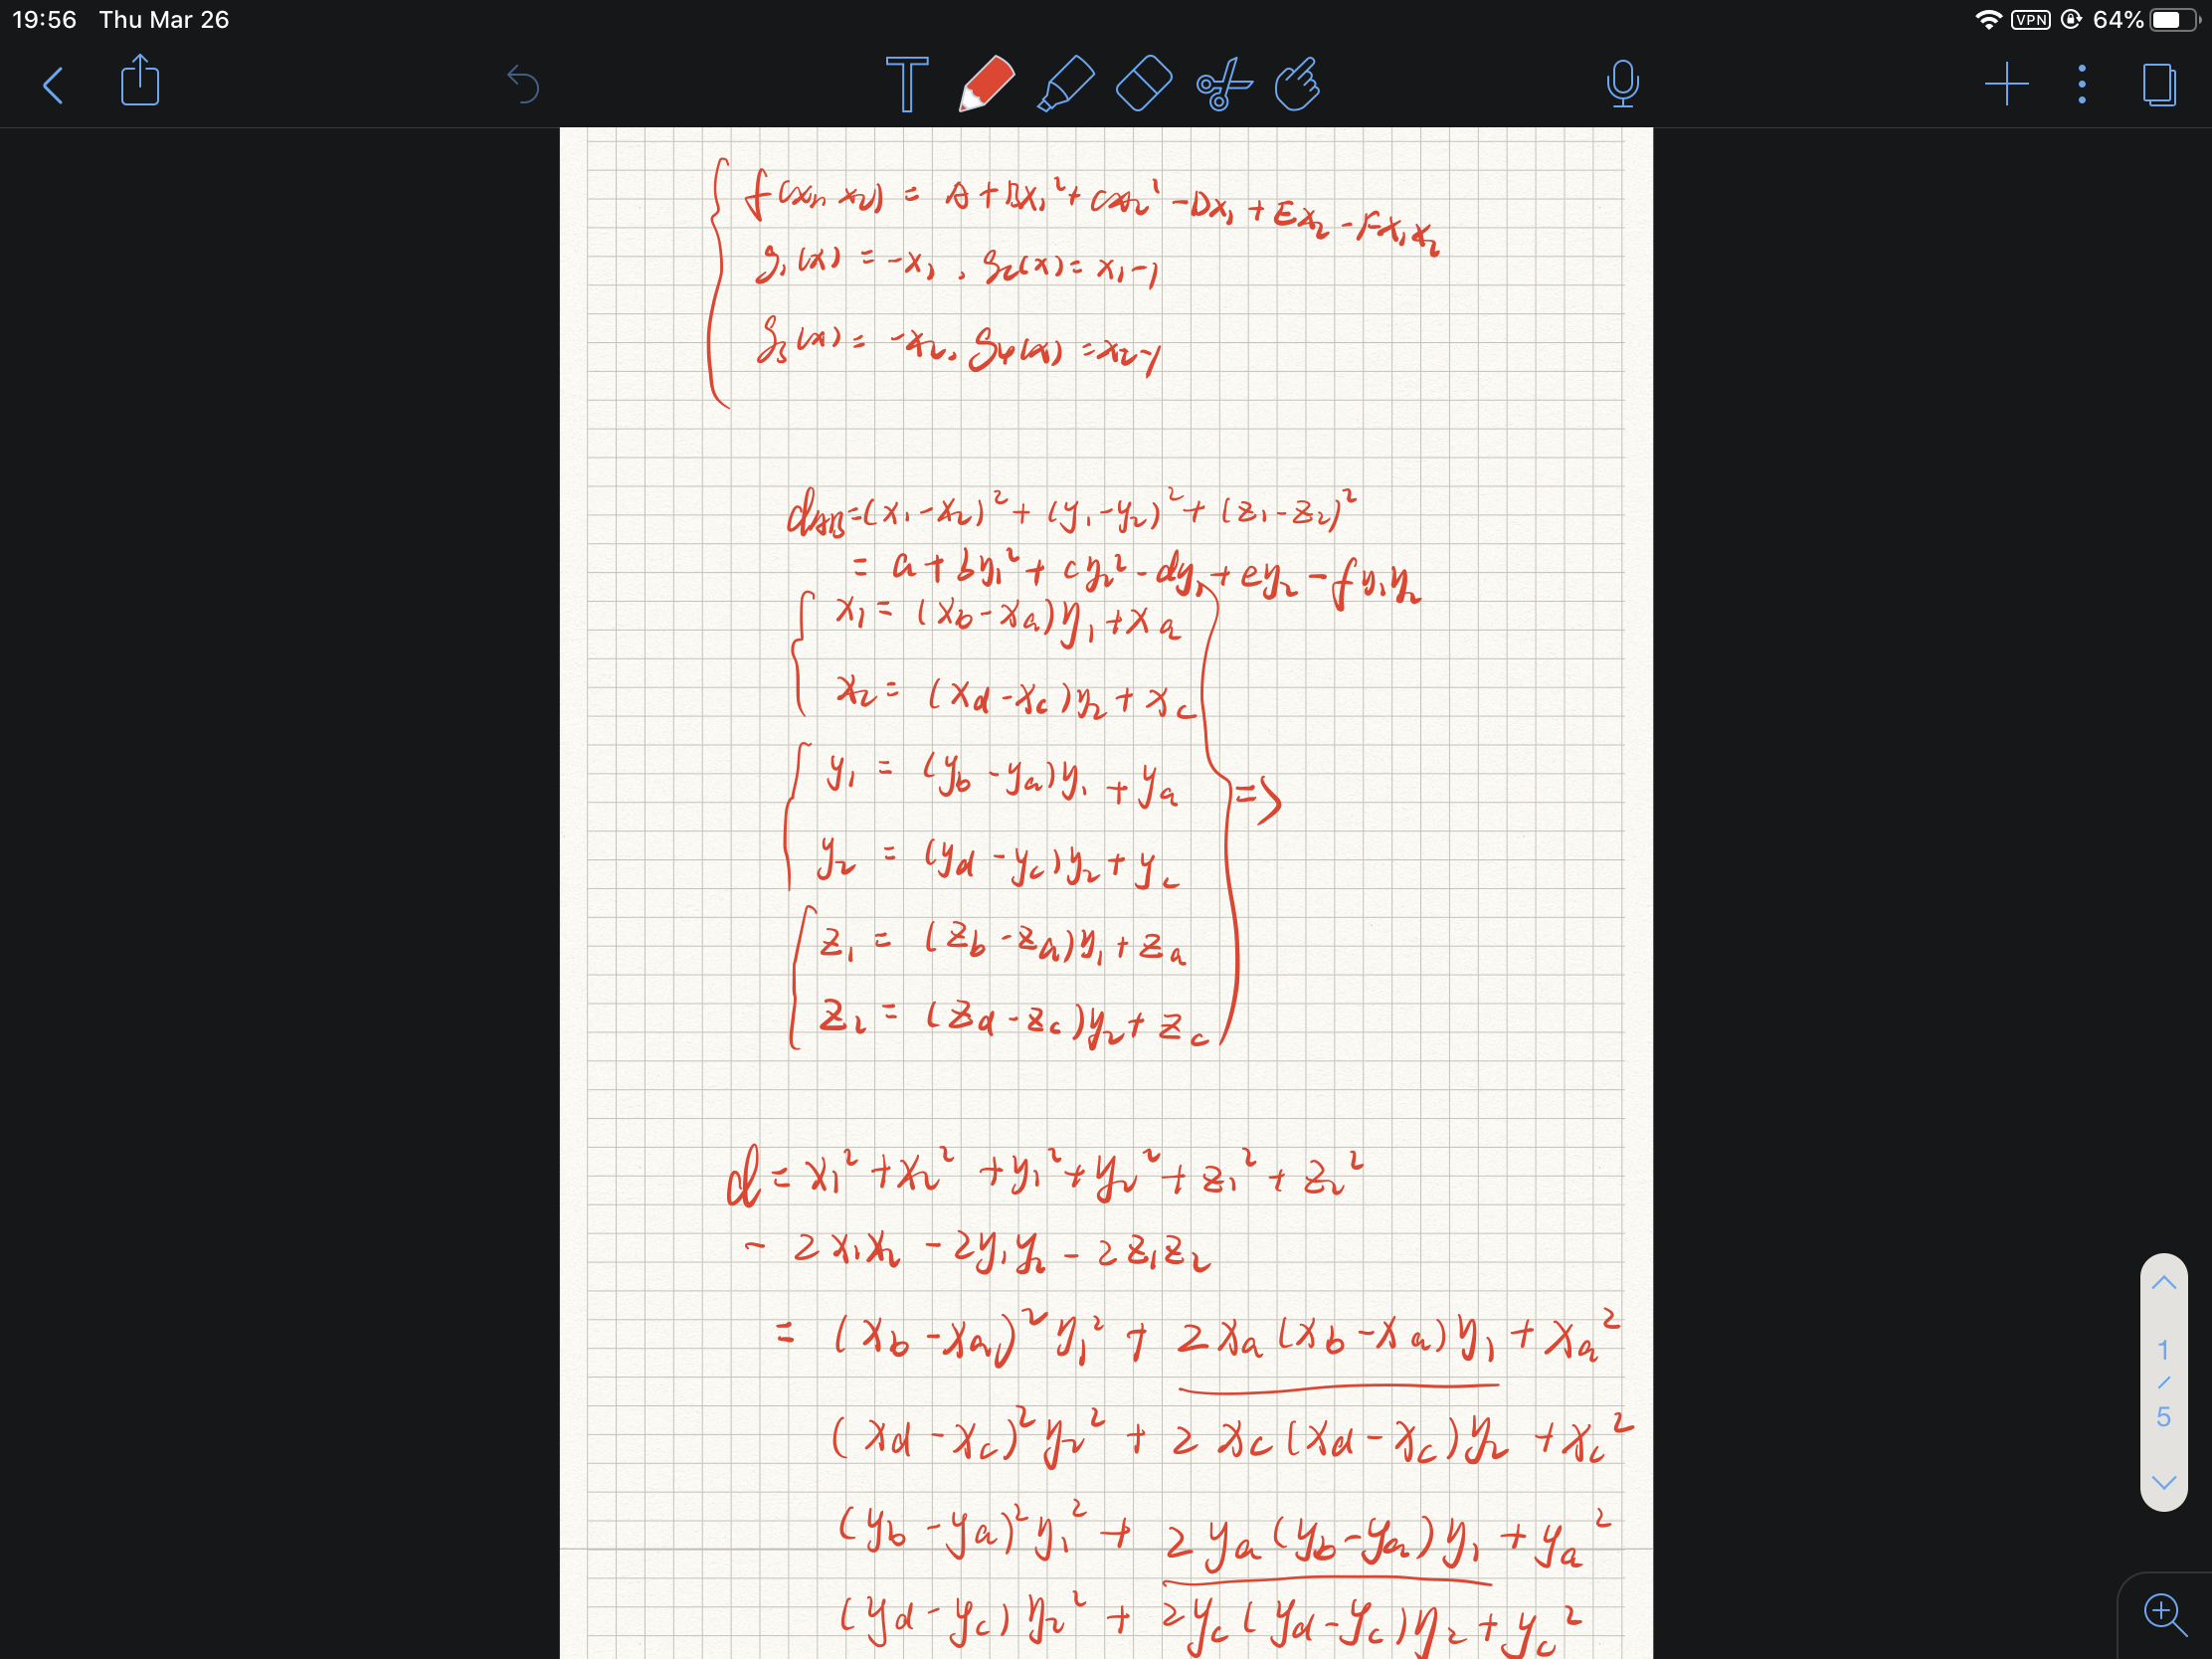 19:56 Thu Mar 26 VPN 64%
f(x₁, x₂) = A + Bx₁² + Cx₂² - Dx₁ + Ex₂ - Fx₁x₂
g₁(x) = -x₁, g₂(x) = x₁-1
g₃(x) = -x₂, g₄(x) = x₂-1
d_AB = (x₁-x₂)² + (y₁-y₂)² + (z₁-z₂)²
= a + by₁² + cy₂² - dy₁ + ey₂ - fy₁y₂
x₁ = (x_b-x_a)y₁ + x_a
x₂ = (x_d-x_c)y₂ + x_c
y₁ = (y_b-y_a)y₁ + y_a
=>
y₂ = (y_d-y_c)y₂ + y_c
z₁ = (z_b-z_a)y₁ + z_a
z₂ = (z_d-z_c)y₂ + z_c
d = x₁² + x₂² + y₁² + y₂² + z₁² + z₂²
- 2x₁x₂ - 2y₁y₂ - 2z₁z₂
= (x_b-x_a)²y₁² + 2x_a(x_b-x_a)y₁ + x_a²
(x_d-x_c)²y₂² + 2x_c(x_d-x_c)y₂ + x_c²
(y_b-y_a)²y₁² + 2y_a(y_b-y_a)y₁ + y_a²
(y_d-y_c)y₂² + 2y_c(y_d-y_c)y₂ + y_c²
1
/
5